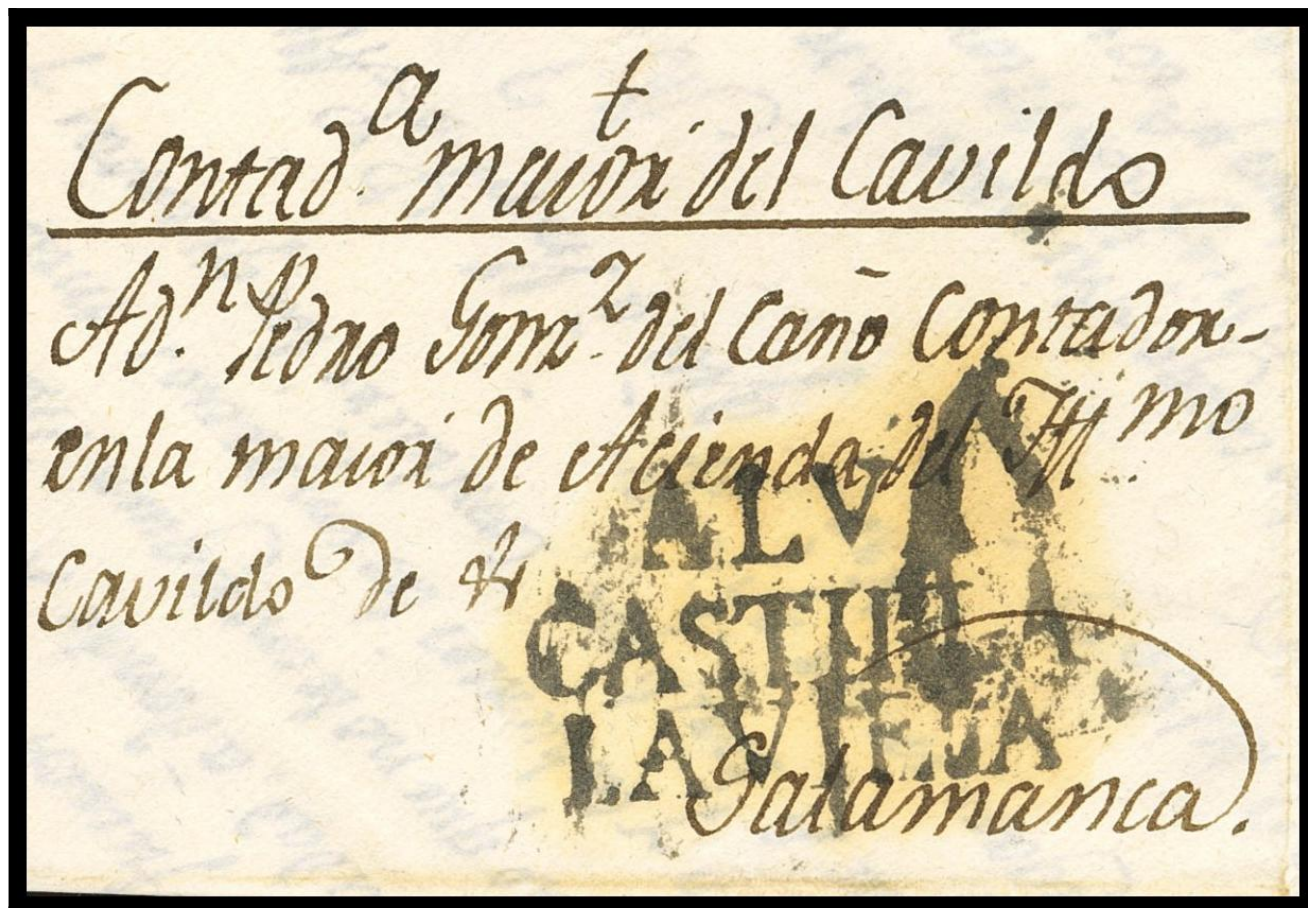 Contad.ª maior del Cavildo
A d.ⁿ Pedro Gom.ᶻ del Caño Contador
en la maior de Acienda del Ill.mo
Cavildo de &
ALVA
CASTILLA
LAVIEJA
Salamanca.